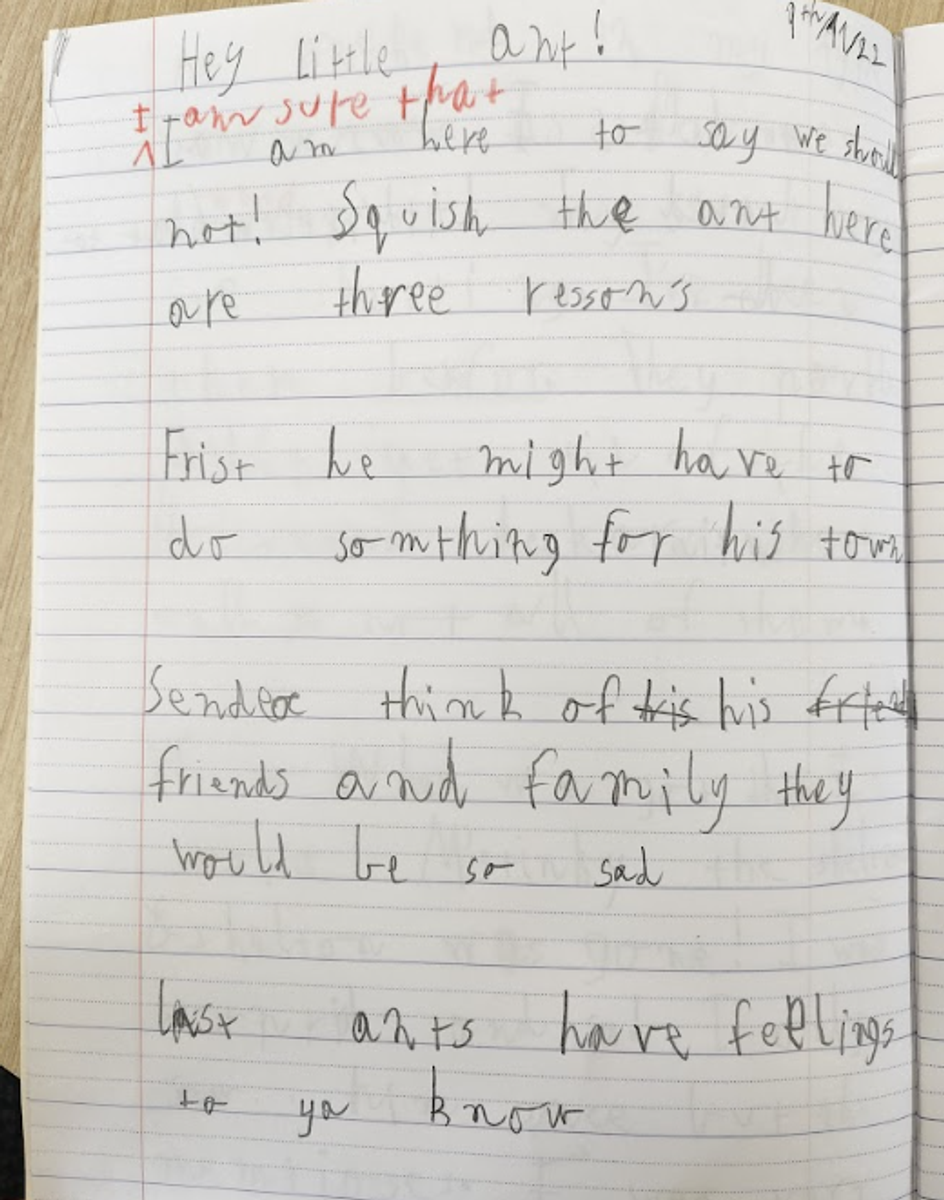 Hey Little ant!
9th/11/22
I am sure that
I am here to say we should
not! Squish the ant here
are three resson's
Frist he might have to
do somthing for his town
Sendec think of his his frien
friends and family they
would be so sad
last ants have feelings
to ya know